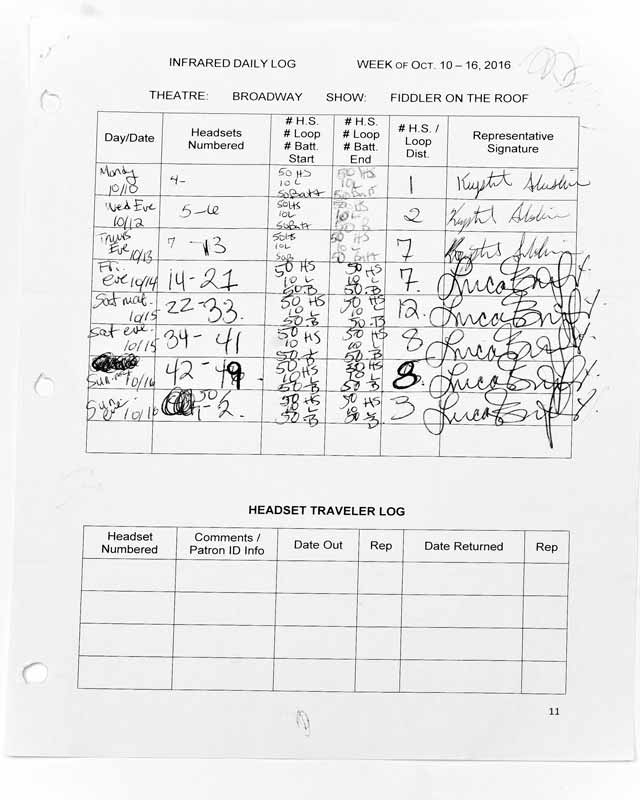 INFRARED DAILY LOG WEEK OF OCT. 10 – 16, 2016
THEATRE: BROADWAY SHOW: FIDDLER ON THE ROOF
Day/Date Headsets Numbered # H.S. # Loop # Batt. Start # H.S. # Loop # Batt. End # H.S. / Loop Dist. Representative Signature
Monday 10/10 4- 50 HS 10 L 50 Batt 50 HS 10 L 50 Batt 1
Wed Eve 10/12 5-6 50 HS 10 L 50 Batt 50 HS 10 L 50 B 2
Thurs Eve 10/13 7-13 50 HS 10 L 50 B 50 HS 10 L 50 Batt 7
Fri. eve 10/14 14-21 50 HS 10 L 50.B 50 HS 10 L 50.B 7.
Sat mat. 10/15 22-33. 50 HS 10 L 50.B 50 HS 10 L 50.B 12.
Sat eve. 10/15 34-41 50 HS 10 L 50.B 50 HS 10 L 50.B 8
Sun. mat 10/16 42-49. 50 HS 10 L 50.B 50 HS 10 L 50.B 8.
Sun. eve 10/16 50 1-2. 50 HS 10 L 50.B 50 HS 10 L 50.B 3
HEADSET TRAVELER LOG
Headset Numbered Comments / Patron ID Info Date Out Rep Date Returned Rep
11